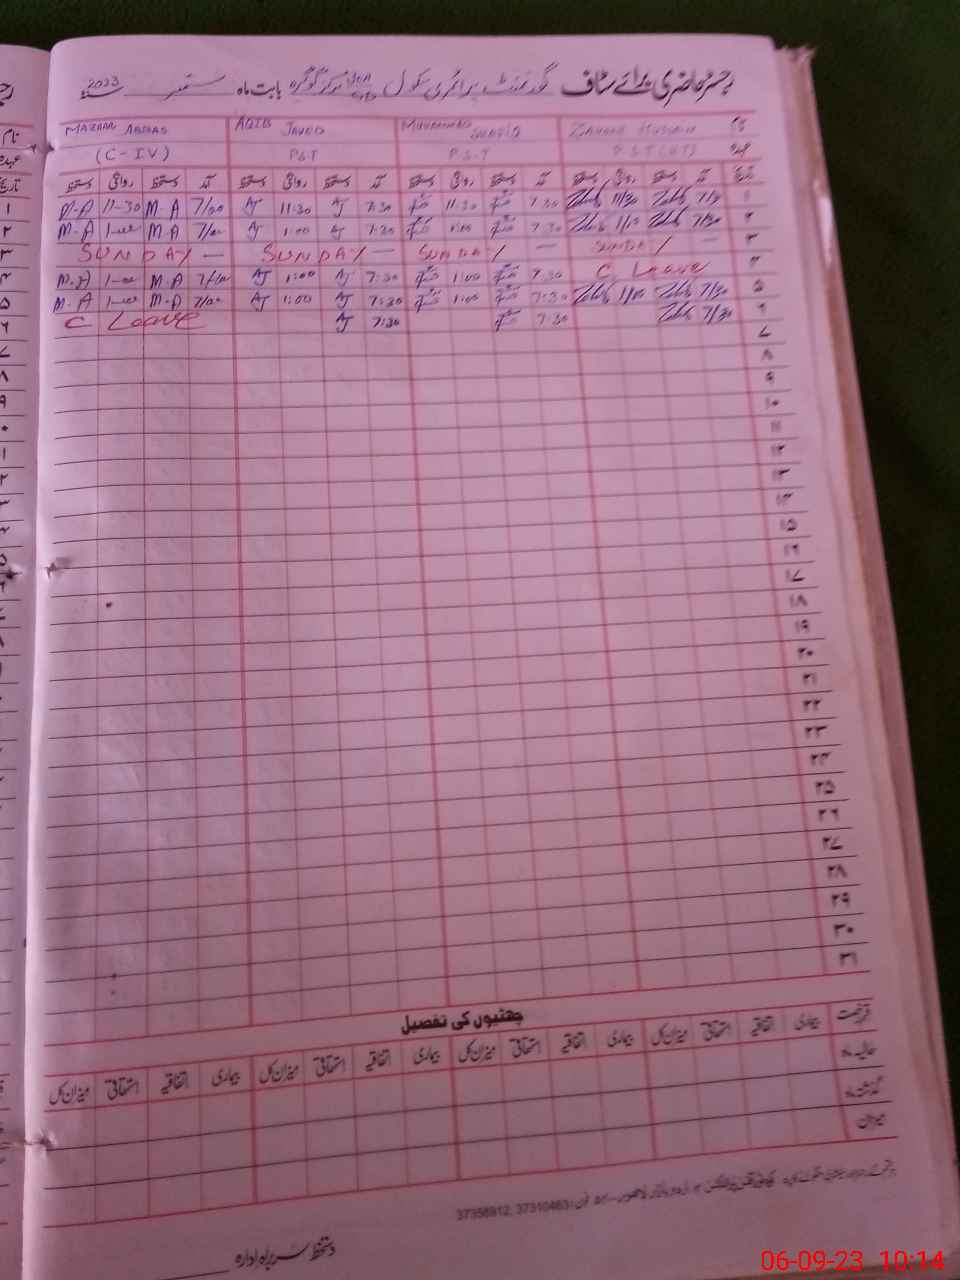 رجسٹر حاضری برائے سٹاف گورنمنٹ پرائمری سکول مرکز گوگڑہ بابت ماہ ستمبر 2023
MAZHAR ABBAS AQIB JAVED MUHAMMAD ZAHOOR HUSSAIN نام
(C-IV) P.S.T P.S.T P.S.T عہدہ
دستخط روانگی دستخط آمد دستخط روانگی دستخط آمد دستخط روانگی دستخط آمد دستخط روانگی دستخط آمد تاریخ
M-A 11-30 M-A 7/00 AJ 11:30 AJ 7:30 11:30 7:30 11/30 7/30 ۱
M-A 1-00 M-A 7/00 AJ 1:00 AJ 7:30 1:00 7:30 1/00 7/30 ۲
SUNDAY — SUNDAY — SUNDAY — SUNDAY — ۳
M-A 1-00 M-A 7/00 AJ 1:00 AJ 7:30 1:00 7:30 C Leave ۴
M-A 1-00 M-A 7/00 AJ 1:00 AJ 7:30 1:00 7:30 1/00 7/30 ۵
C Leave AJ 7:30 7:30 7/30 ۶
۷
۸
۹
۱۰
۱۱
۱۲
۱۳
۱۴
۱۵
۱۶
۱۷
۱۸
۱۹
۲۰
۲۱
۲۲
۲۳
۲۴
۲۵
۲۶
۲۷
۲۸
۲۹
۳۰
۳۱
چھٹیوں کی تفصیل
قسم رخصت بیماری اتفاقیہ استحقاقی میزان کل بیماری اتفاقیہ استحقاقی میزان کل بیماری اتفاقیہ استحقاقی میزان کل
حالیہ ماہ
گذشتہ ماہ
میزان
37356912, 37310463
دستخط سربراہ ادارہ
06-09-23 10:14